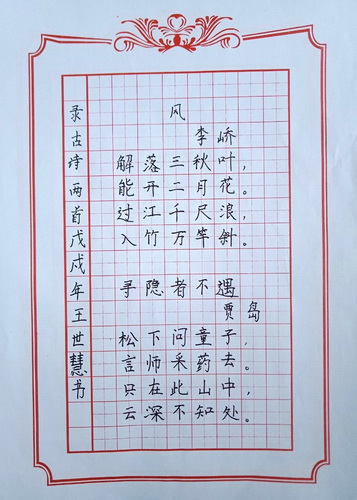 录古诗两首戊戌年王世慧书
风
李峤
解落三秋叶，
能开二月花。
过江千尺浪，
入竹万竿斜。
寻隐者不遇
贾岛
松下问童子，
言师采药去。
只在此山中，
云深不知处。